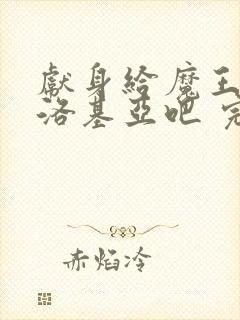 獻身給魔王
洛基亞吧
赤焰冷